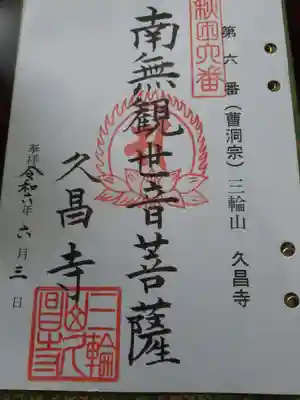 第六番(曹洞宗)三輪山 久昌寺
秩父六番
南無観世音菩薩
久昌寺
奉拝
令和六年六月三日